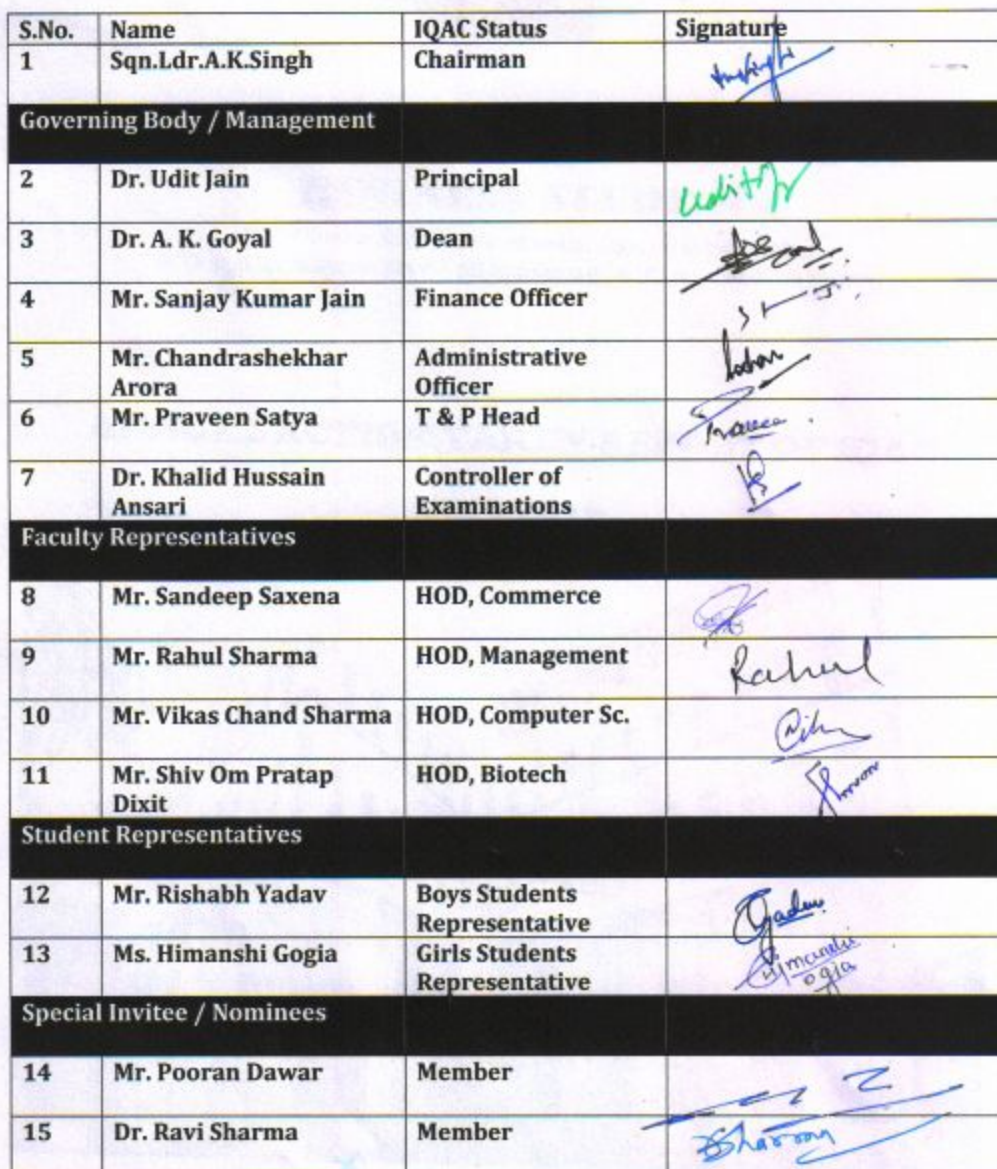 S.No. Name IQAC Status Signature
1 Sqn.Ldr.A.K.Singh Chairman
Governing Body / Management
2 Dr. Udit Jain Principal
3 Dr. A. K. Goyal Dean
4 Mr. Sanjay Kumar Jain Finance Officer
5 Mr. Chandrashekhar Administrative
Arora Officer
6 Mr. Praveen Satya T & P Head
7 Dr. Khalid Hussain Controller of
Ansari Examinations
Faculty Representatives
8 Mr. Sandeep Saxena HOD, Commerce
9 Mr. Rahul Sharma HOD, Management Rahul
10 Mr. Vikas Chand Sharma HOD, Computer Sc.
11 Mr. Shiv Om Pratap HOD, Biotech
Dixit
Student Representatives
12 Mr. Rishabh Yadav Boys Students
Representative
13 Ms. Himanshi Gogia Girls Students
Representative
Special Invitee / Nominees
14 Mr. Pooran Dawar Member
15 Dr. Ravi Sharma Member